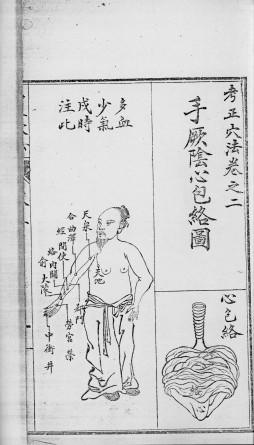 考正穴法卷之二
手厥陰心包絡圖
心包絡
多血
少氣
戌時
注此
天泉
合曲澤
經間使
絡內關
俞大陵
天池
郄門
勞宮 榮
中衝 井
心